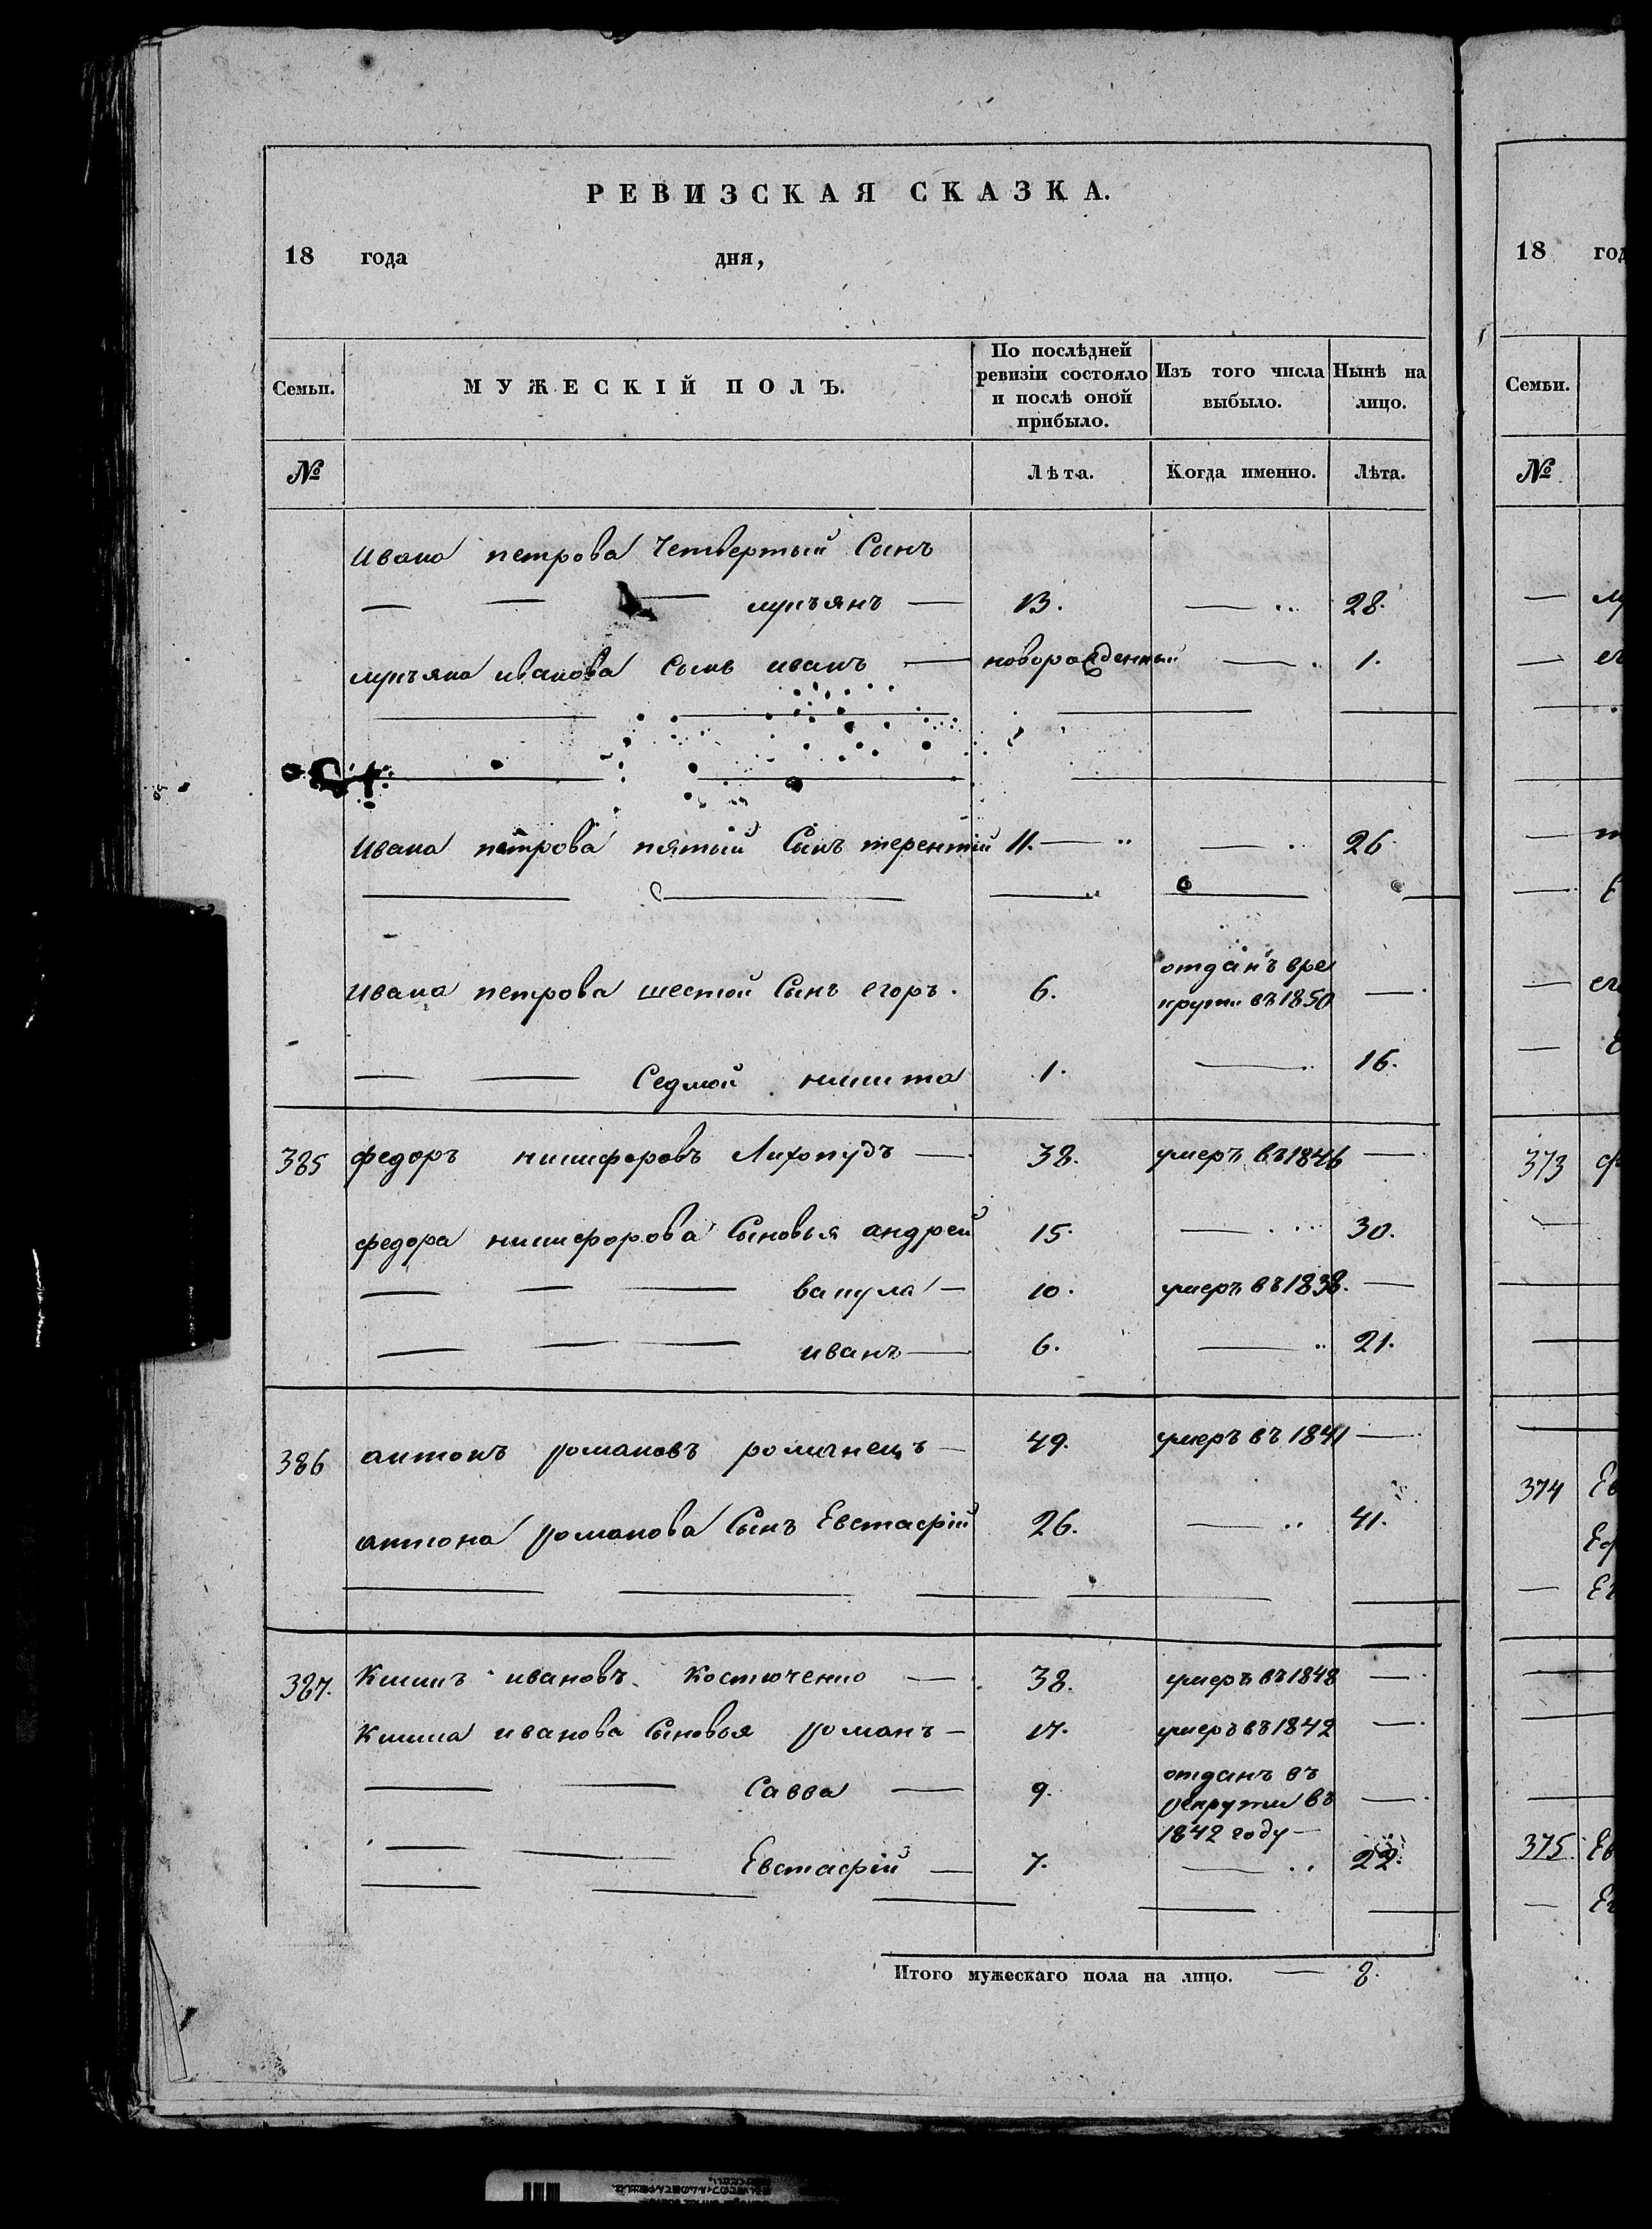 РЕВИЗСКАЯ СКАЗКА.
18 года дня,
Семьи. МУЖЕСКІЙ ПОЛЪ. По послѣдней ревизіи состояло и послѣ оной прибыло. Изъ того числа выбыло. Нынѣ на лицо.
№ Лѣта. Когда именно. Лѣта.
Ивана петрова Четвертый Сынъ
— — — лукъянъ — 13. — 28.
лукъяна иванова Сынъ иванъ — новорожденный — 1.
Ивана петрова пятый Сынъ терентій 11. — — 26
Ивана петрова шестой Сынъ егоръ. 6. отданъ вре
круты въ 1850 —
— — Седмой никита 1. — 16.
385 федоръ никифоровъ Лихопудъ — 38. умеръ въ 1846 —
федора никифорова Сыновья андрей 15. — 30.
— — — вакула — 10. умеръ въ 1838. —
— — — иванъ — 6. — 21.
386 антонъ романовъ романецъ — 49. умеръ въ 1841 —
антона романова Сынъ Евстафій 26. — 41.
387. Климъ ивановъ Костюченко — 38. умеръ въ 1848 —
Клима иванова Сыновья романъ — 17. умеръ въ 1842 —
— — Савва — 9. отданъ въ
рекруты въ —
1842 году —
— — Евстафій — 7. — 22.
Итого мужескаго пола на лицо. — 8.
18 год
Семьи.
№
373
374 Ев
375. Ев